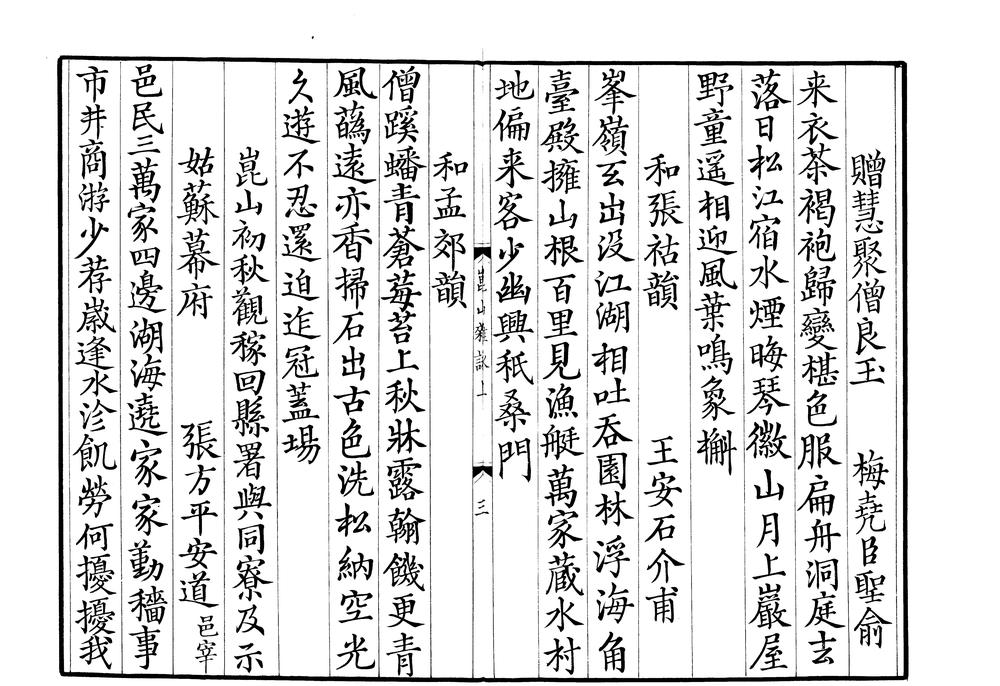 贈慧聚僧良玉　梅堯臣聖俞
来衣茶褐袍歸變椹色服扁舟洞庭去
落日松江宿水煙晦琴徽山月上巖屋
野童遥相迎風葉鳴象槲
和張祜韻　王安石介甫
峯嶺玄出没江湖相吐吞園林浮海角
臺殿擁山根百里見漁艇萬家藏水村
地偏来客少幽興秖桑門
崑山雜詠上　三
和孟郊韻
僧蹊蟠青蒼莓苔上秋牀露翰饑更青
風蘤遠亦香掃石出古色洗松納空光
久遊不忍還迫迮冠蓋場
崑山初秋觀稼回縣署與同寮及示
姑蘇幕府　張方平安道邑宰
邑民三萬家四邊湖海遶家家勤穡事
市井商游少荐歲逢水沴飢勞何擾擾我